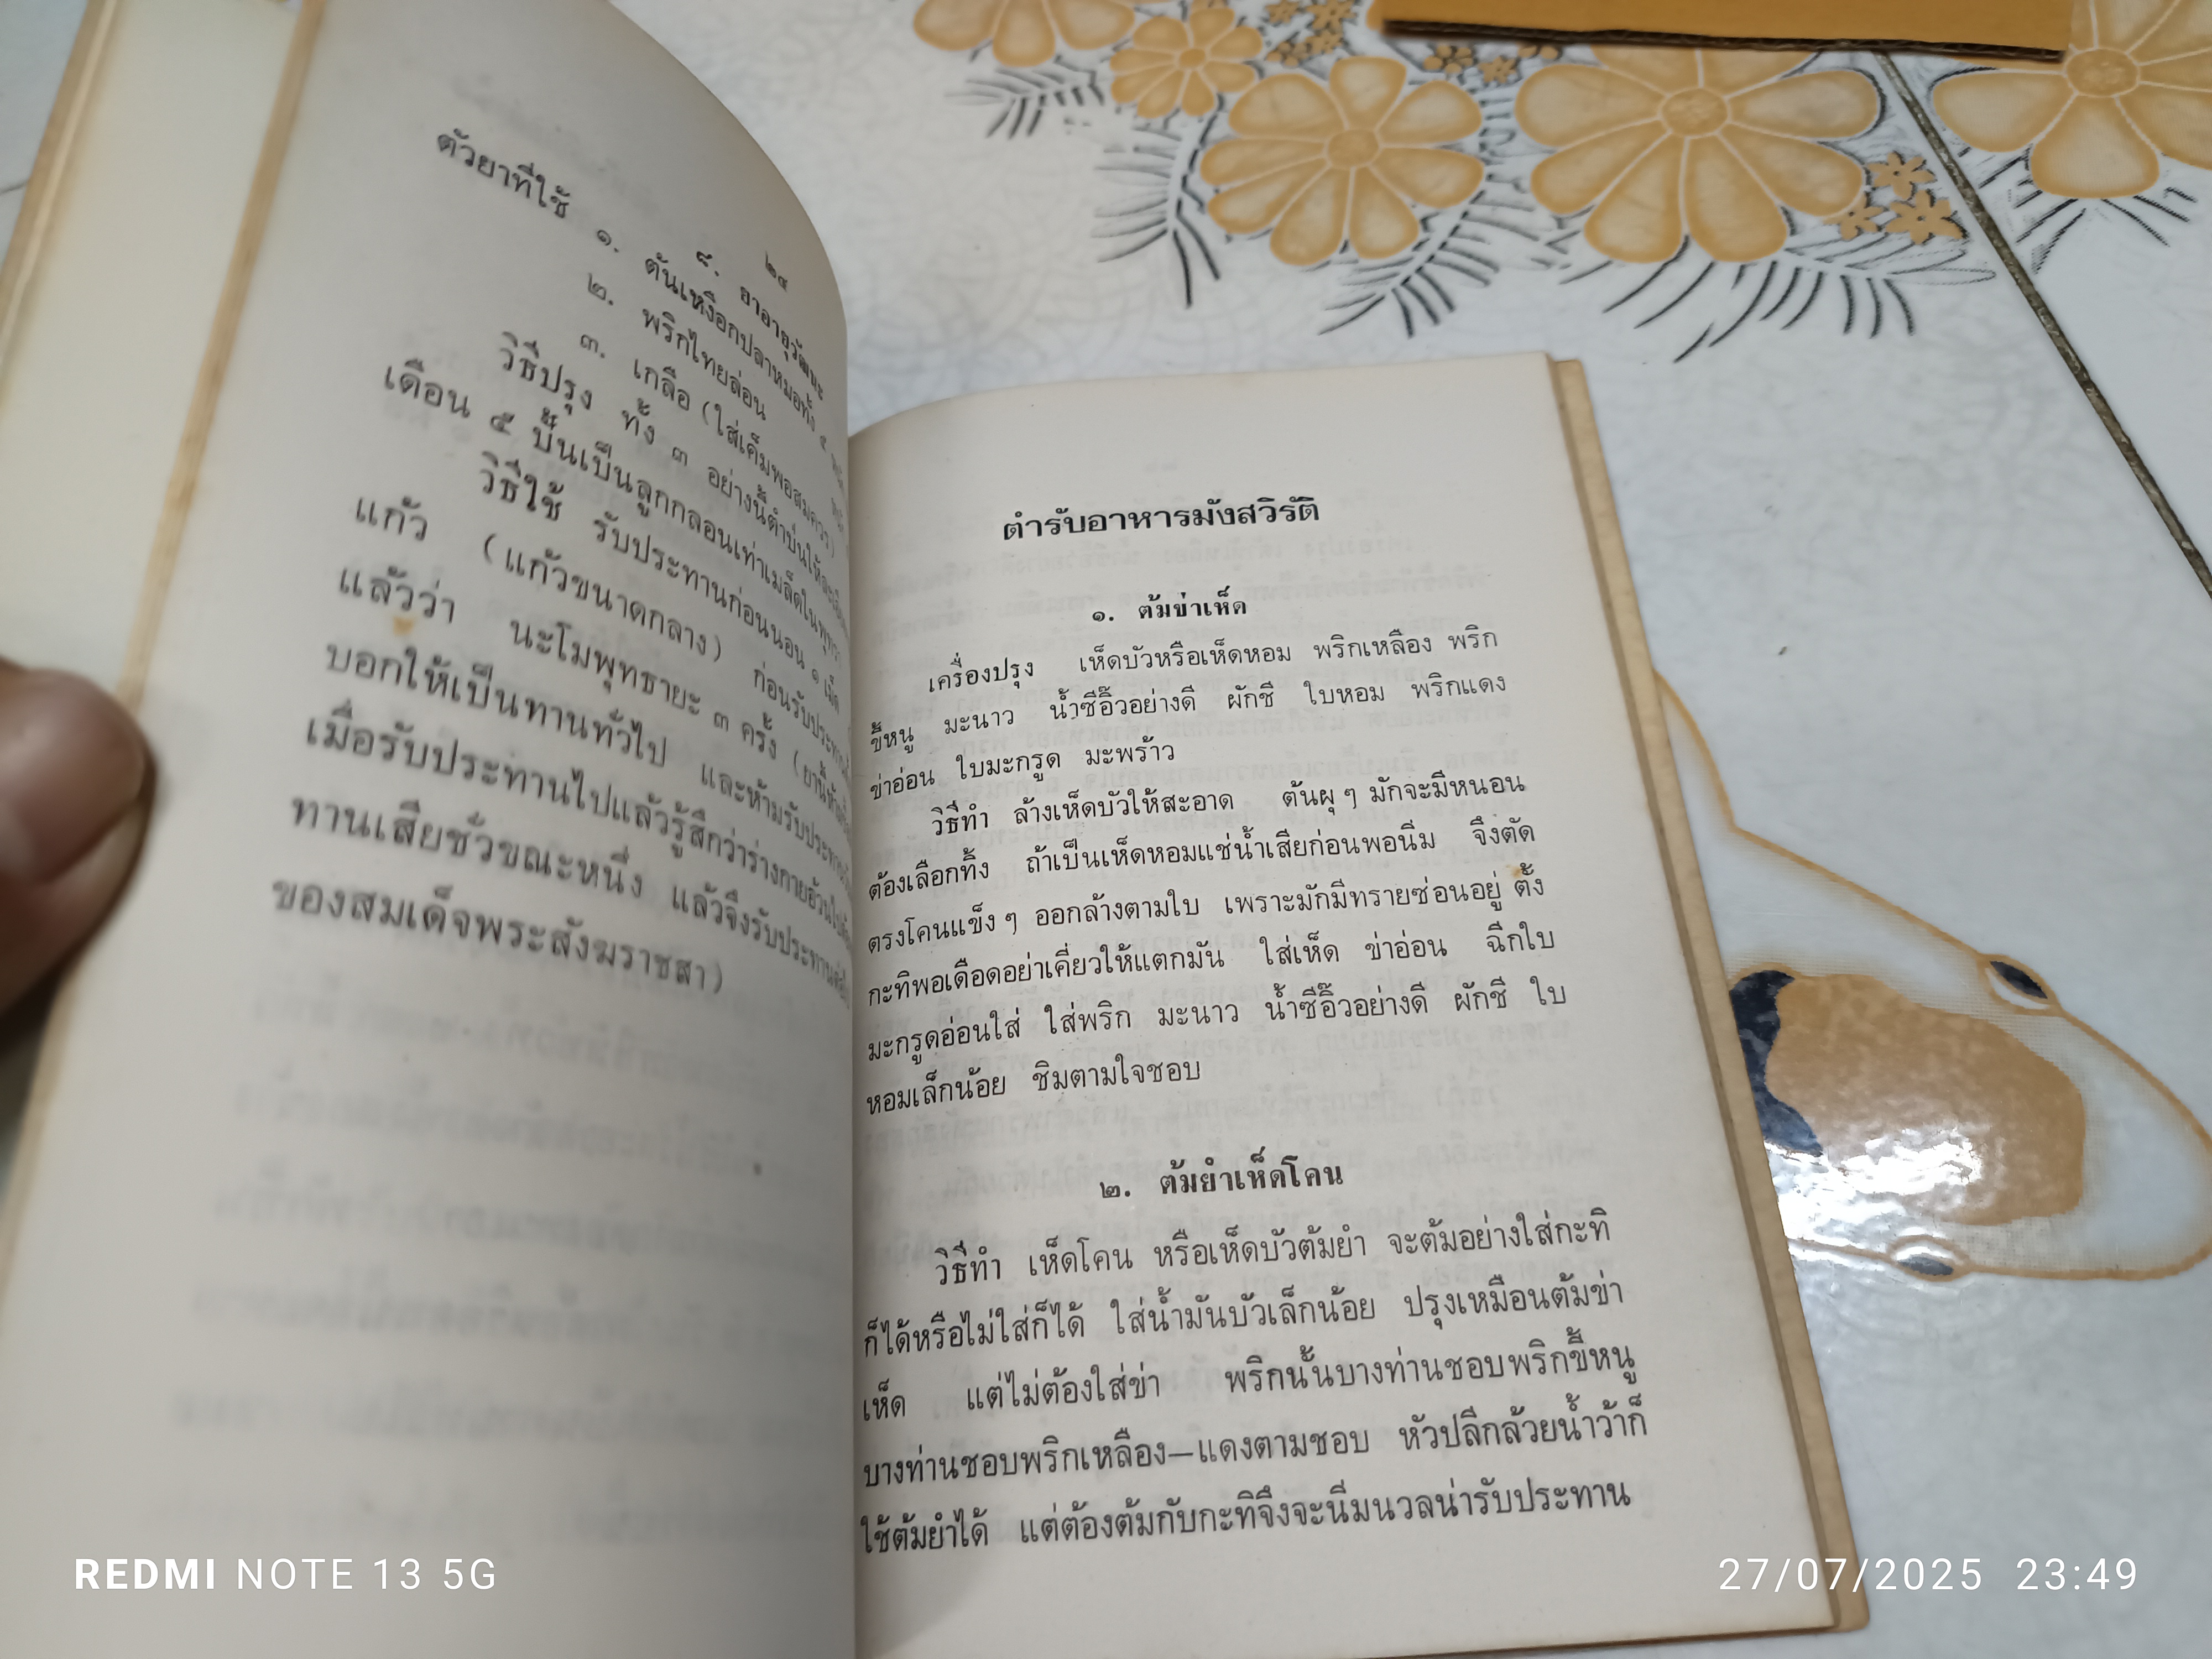 ๒๔
๙. ยาอายุวัฒนะ
ตัวยาที่ใช้ ๑. ต้นเหงือกปลาหมอทั้ง ๕
๒. พริกไทยล่อน
๓. เกลือ (ใส่เค็มพอสมควร)
วิธีปรุง ทั้ง ๓ อย่างนี้ตำป่นให้ละเอียด
เดือน ๕ ปั้นเป็นลูกกลอนเท่าเมล็ดในพุทรา
วิธีใช้ รับประทานก่อนนอน ๑ เม็ด
แก้ว (แก้วขนาดกลาง) ก่อนรับประทาน
แล้วว่า นะโมพุทธายะ ๓ ครั้ง (ยานี้
บอกให้เป็นทานทั่วไป และห้ามรับประทาน
เมื่อรับประทานไปแล้วรู้สึกว่าร่างกายอ้วนไป
ทานเสียชั่วขณะหนึ่ง แล้วจึงรับประทาน
ของสมเด็จพระสังฆราชสา)
ตำรับอาหารมังสวิรัติ
๑. ต้มข่าเห็ด
เครื่องปรุง เห็ดบัวหรือเห็ดหอม พริกเหลือง พริก
ขี้หนู มะนาว น้ำซีอิ๊วอย่างดี ผักชี ใบหอม พริกแดง
ข่าอ่อน ใบมะกรูด มะพร้าว
วิธีทำ ล้างเห็ดบัวให้สะอาด ต้นผุ ๆ มักจะมีหนอน
ต้องเลือกทิ้ง ถ้าเป็นเห็ดหอมแช่น้ำเสียก่อนพอนิ่ม จึงตัด
ตรงโคนแข็ง ๆ ออกล้างตามใบ เพราะมักมีทรายซ่อนอยู่ ตั้ง
กะทิพอเดือดอย่าเคี่ยวให้แตกมัน ใส่เห็ด ข่าอ่อน ฉีกใบ
มะกรูดอ่อนใส่ ใส่พริก มะนาว น้ำซีอิ๊วอย่างดี ผักชี ใบ
หอมเล็กน้อย ชิมตามใจชอบ
๒. ต้มยำเห็ดโคน
วิธีทำ เห็ดโคน หรือเห็ดบัวต้มยำ จะต้มอย่างใส่กะทิ
ก็ได้หรือไม่ใส่ก็ได้ ใส่น้ำมันบัวเล็กน้อย ปรุงเหมือนต้มข่า
เห็ด แต่ไม่ต้องใส่ข่า พริกนั้นบางท่านชอบพริกขี้หนู
บางท่านชอบพริกเหลือง—แดงตามชอบ หัวปลีกล้วยน้ำว้าก็
ใช้ต้มยำได้ แต่ต้องต้มกับกะทิจึงจะนิ่มนวลน่ารับประทาน
REDMI NOTE 13 5G
27/07/2025 23:49